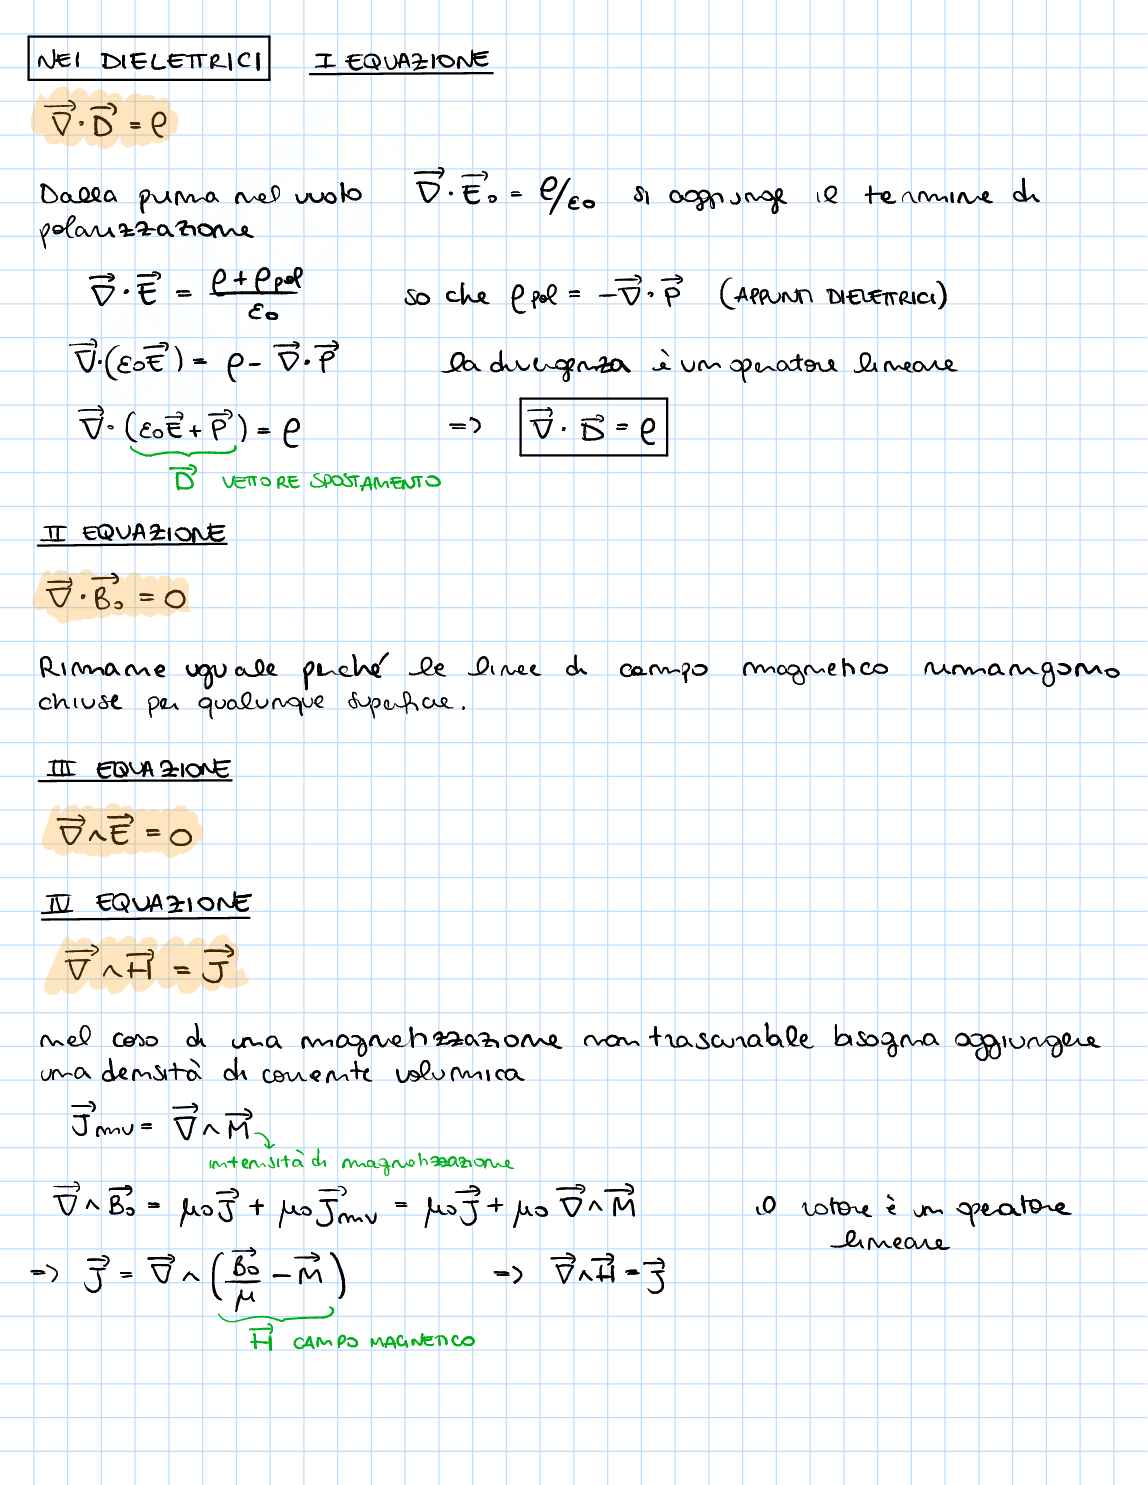 NEI DIELETTRICI I EQUAZIONE
∇⃗·D⃗ = ρ
Dalla prima nel vuoto ∇⃗·E⃗₀ = ρ/ε₀ si aggiunge il termine di
polarizzazione
∇⃗·E⃗ = (ρ + ρpol)/ε₀ so che ρpol = -∇⃗·P⃗ (APPUNTI DIELETTRICI)
∇⃗·(ε₀E⃗) = ρ - ∇⃗·P⃗ la divergenza è un operatore lineare
∇⃗·(ε₀E⃗ + P⃗) = ρ => ∇⃗·D⃗ = ρ
D⃗ VETTORE SPOSTAMENTO
II EQUAZIONE
∇⃗·B⃗₀ = 0
Rimane uguale perché le linee di campo magnetico rimangono
chiuse per qualunque superficie.
III EQUAZIONE
∇⃗∧E⃗ = 0
IV EQUAZIONE
∇⃗∧H⃗ = J⃗
nel caso di una magnetizzazione non trascurabile bisogna aggiungere
una densità di corrente volumica
J⃗mv = ∇⃗∧M⃗
intensità di magnetizzazione
∇⃗∧B⃗₀ = μ₀J⃗ + μ₀J⃗mv = μ₀J⃗ + μ₀∇⃗∧M⃗ il rotore è un operatore
lineare
=> J⃗ = ∇⃗∧(B⃗₀/μ - M⃗) => ∇⃗∧H⃗ = J⃗
H⃗ CAMPO MAGNETICO